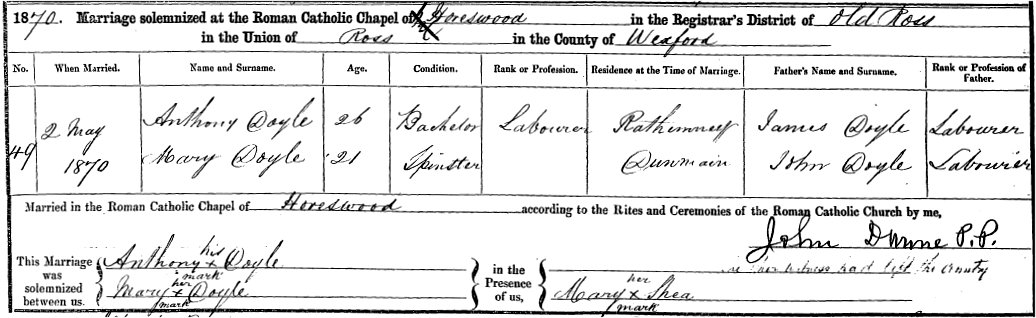 1870. Marriage solemnized at the Roman Catholic Chapel of Horeswood in the Registrar's District of Old Ross
in the Union of Ross in the County of Wexford
No. When Married. Name and Surname. Age. Condition. Rank or Profession. Residence at the Time of Marriage. Father's Name and Surname. Rank or Profession of Father.
49 2 May 1870 Anthony Doyle 26 Bachelor Labourer James Doyle Labourer
Mary Doyle 21 Spinster Dunmain John Doyle Labourer
Married in the Roman Catholic Chapel of Horeswood according to the Rites and Ceremonies of the Roman Catholic Church by me,
John Dunne P.P.
This Marriage was solemnized between us, Anthony his x mark Doyle
Mary her x mark Doyle
in the Presence of us, witness had left the country
Mary her x mark Shea